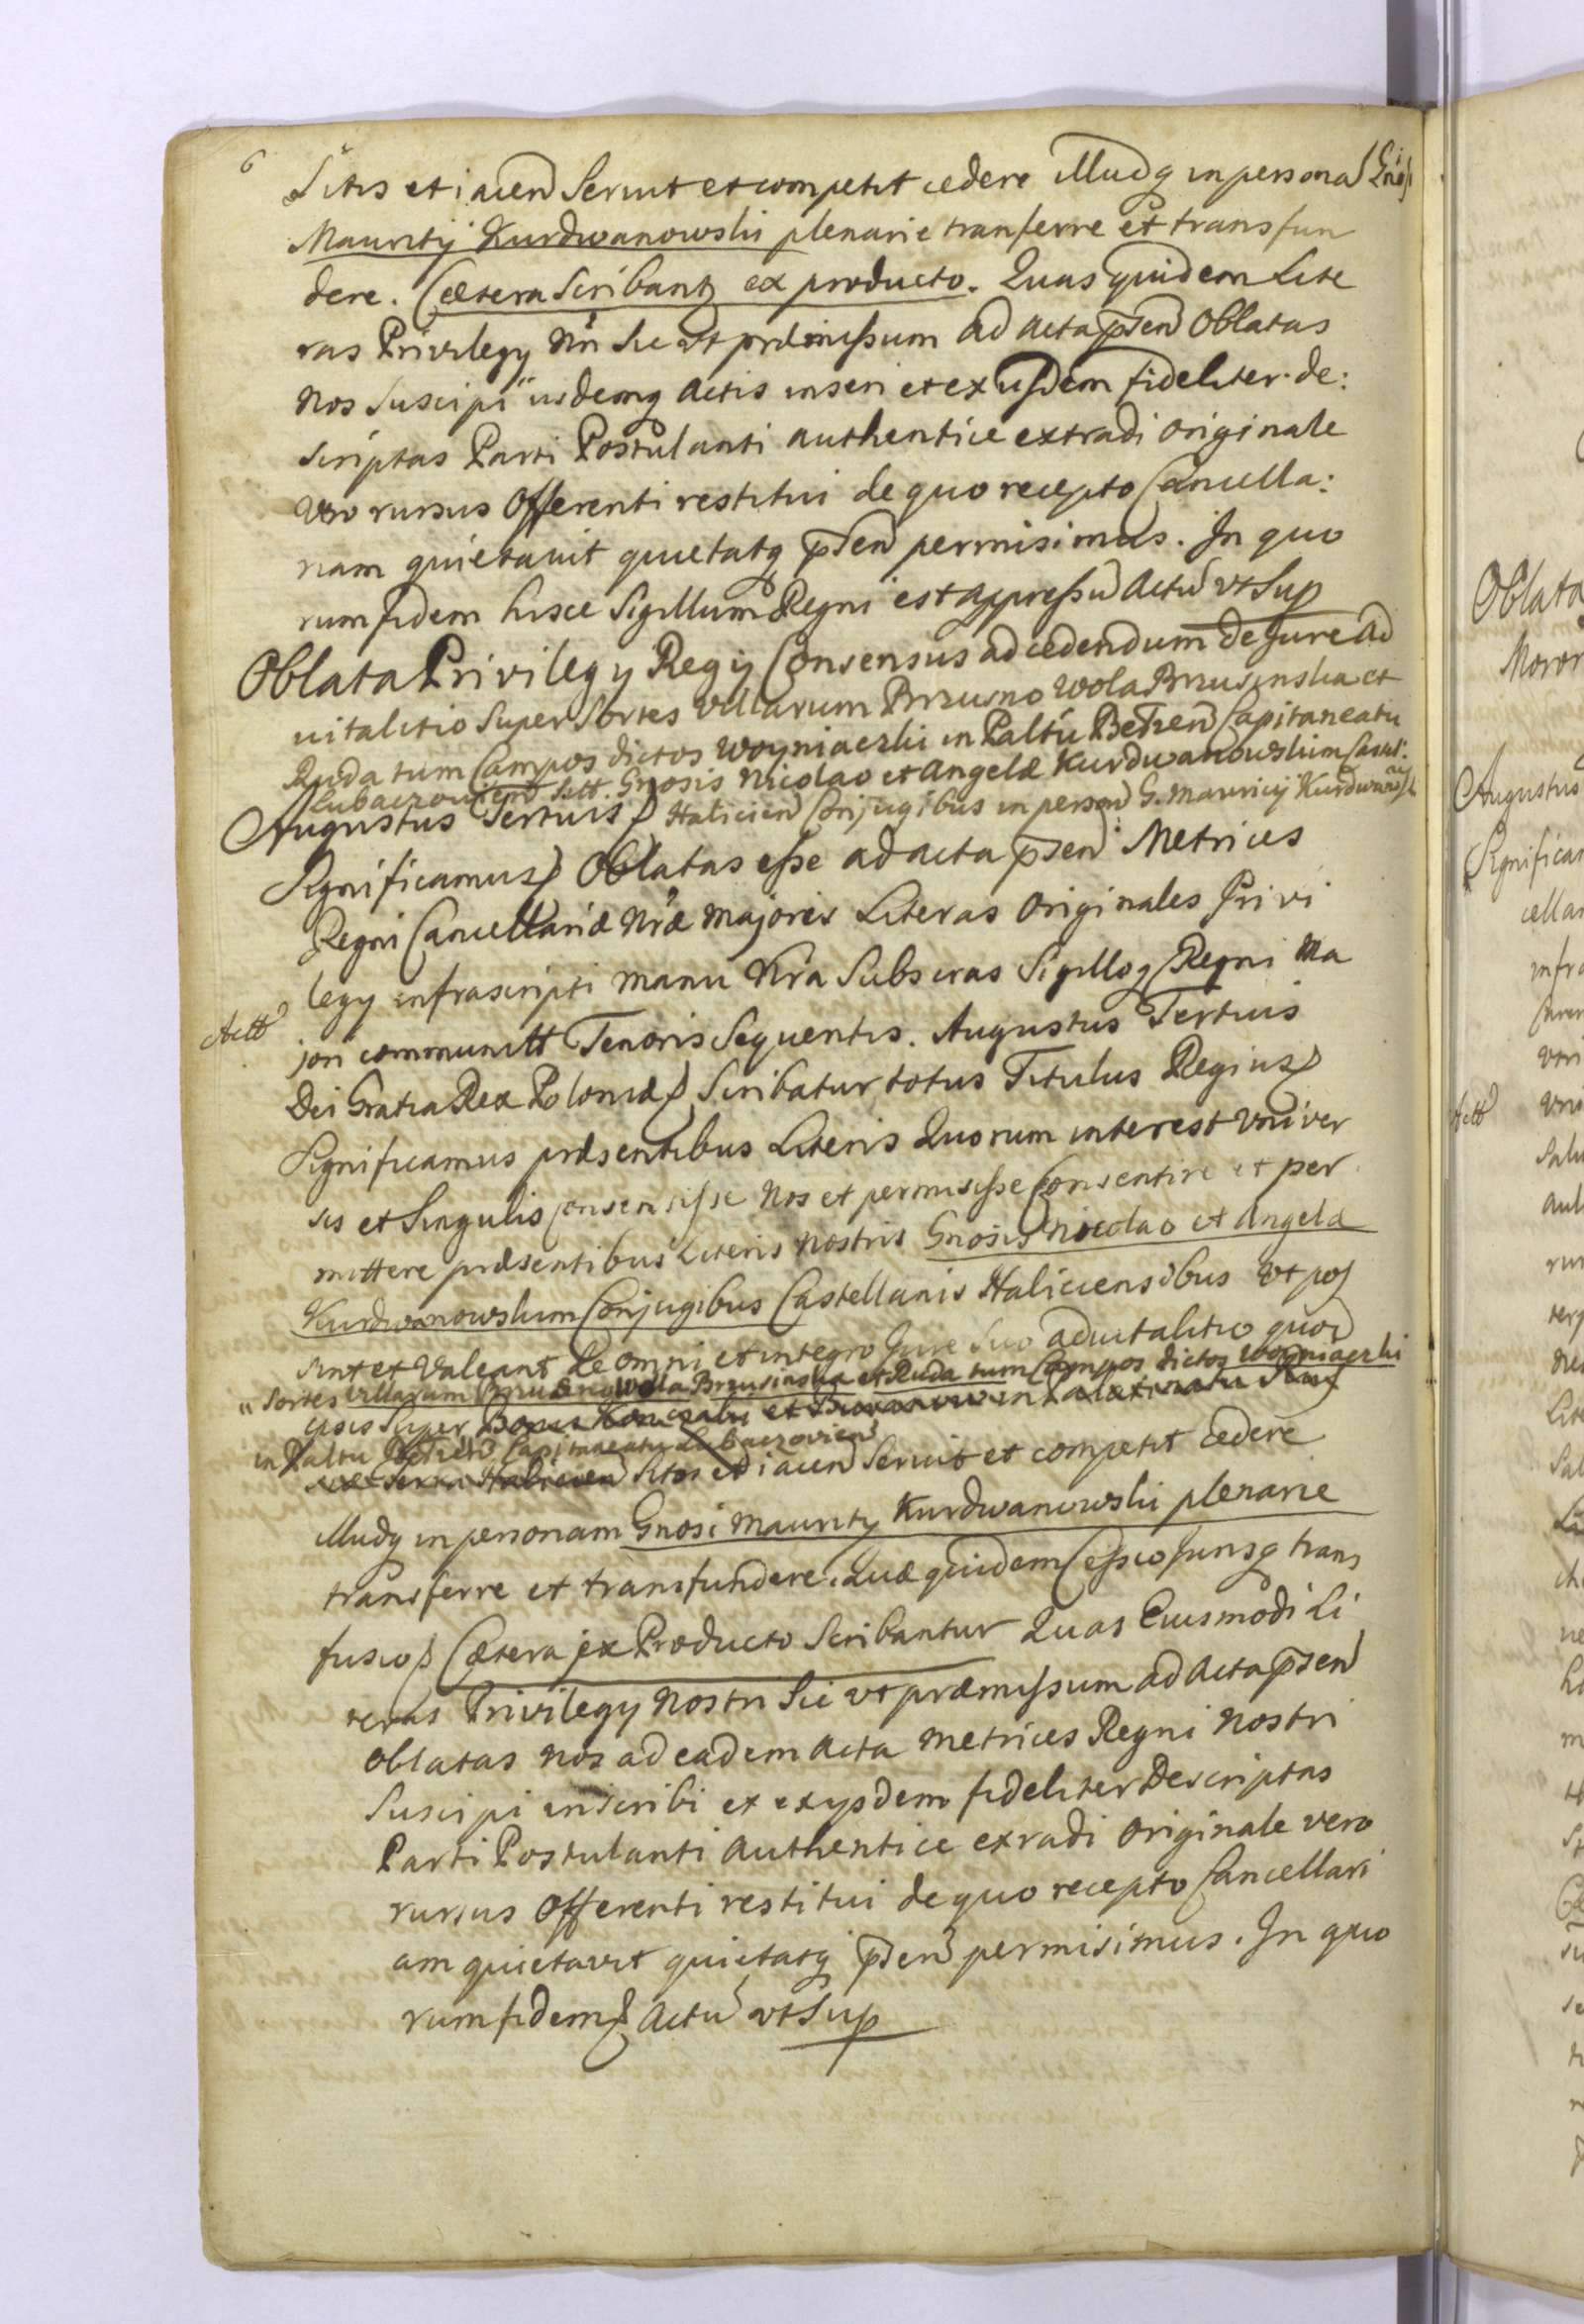 6
Sitis et iacen Seruit et competit cedere illudq in persona Gnosi
Mauritij Kurdwanowski plenarie tranferre et transfun
dere. Cætera Scribantz ex producto. Quas quidem Lite
ras Privilegy Nri Sic vt præmissum ad acta psen Oblatas
nos Suscipi iisdemq Actis inseri et ex ijsdem fideliter de:
scriptas Parti Postulanti authentice extradi originale
vero rursus Offerenti restitui de quo recepto Cancella:
riam quietavit quietatq psen permisimus. In quo
rum fidem hisce Sigillum Regni est appressu Actu vt Sup
Oblata Privilegy Regij Consensus ad cedendum de Jure ad
uitalitio super Sortes Villarum Brzusno Wola Brzusinska et
Ruda tum Campos dictos Woyniaczki in Paltu Belzen Capitaneatu
Lubaczovien Sitt. Gnosis Nicolao et Angelæ Kurdwanowskim Castel:
Augustus Tertius Halicien Conjugibus in person G. Mauricij Kurdwanowsk
Significamus Oblatas esse ad acta psen Metrices
Regni Cancellariæ Nræ Majoris Literas originales Privi
legy infrascripti manu Nra Subscras Sigilloq Regni Ma
Actt
jori communitt Tenoris Sequentis. Augustus Tertius
Dei Gratia Rex Poloniæ Scribatur totus Titulus Regius
Significamus præsentibus Literis Quorum interest Vniver
sis et Singulis consensisse Nos et permisisse Consentire et per
mittere præsentibus Literis nostris Gnosis Nicolao et Angelæ
Kurdwanowskim Conjugibus Castellanis Haliciensibus Vt pos
sint et Valeant de omni et integro Jure Suo aduitalitio quod
" Sortes Villarum Brzusno Wola Brzusinska et Ruda tum Campos dictos Woyniaczki
ipsis Super Bonis et in Palatinatu
in Paltu Belzen Capitaneatu Lubaczovien
Terra Halicien Sitos et iacen Seruit et competit cedere
illudq in personam Gnosi Maurity Kurdwanowski plenarie
transferre et transfundere. Quæ quidem Cessio Jurisq trans
fusio Cætera ex Producto Scribantur Quas Eiusmodi Li
teras Privilegy Nostri Sic vt præmissum ad Acta psen
oblatas nos ad eadem Acta Metrices Regni Nostri
Suscipi inscribi et ex ijsdem fideliter Descriptas
Parti Postulanti Authentice exradi Originale vero
rursus Offerenti restitui de quo recepto Cancellari
am quietavit quietatq psen permisimus. In quo
rum fidem Actu vt Sup
Oblata
Augustus
Actt